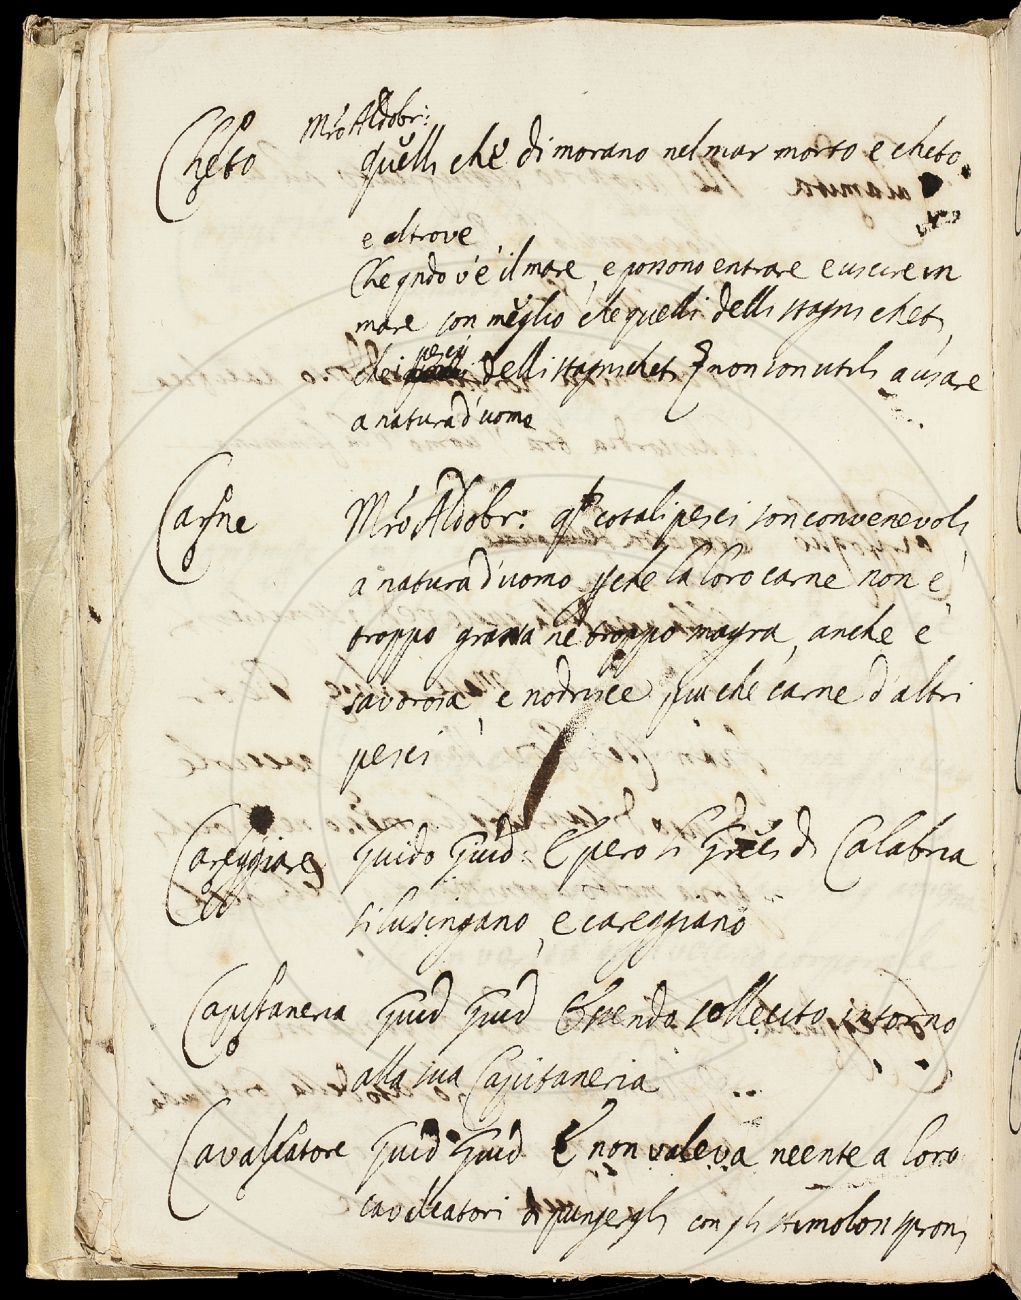 Cheto Mro Aldobr: quelli che dimorano nel mar morto e cheto
e altrove
Che qndo v'è il mare, e possono entrare e uscire in
mare son meglio che quelli delli stagni cheti,
che i pesci delli stagni cheti non son utili a usare
a natura d'uomo
Carne Mro Aldobr: cotali pesci son convenevoli
a natura d'uomo pche la loro carne non è
troppo grassa nè troppo magra, anche è
savorosa, e nodrisce piu che carne d'altri
pesci
Careggiare Guido Guid: E pero li Greci di Calabria
si lusingano, e careggiano
Capitaneria Guid Guid Essendo sollecito intorno
alla sua Capitaneria
Cavalcatore Guid Guid E non valeva neente a loro
cavalcatori di pungergli con gli stimolosi sproni